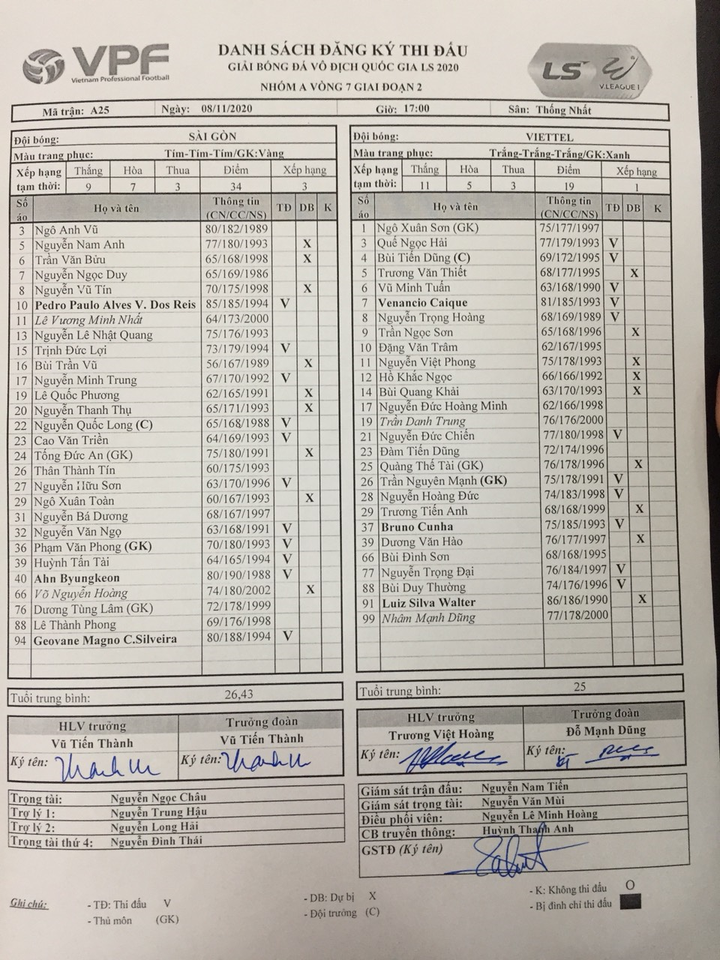 VPF
Vietnam Professional Football
DANH SÁCH ĐĂNG KÝ THI ĐẤU
GIẢI BÓNG ĐÁ VÔ ĐỊCH QUỐC GIA LS 2020
NHÓM A VÒNG 7 GIAI ĐOẠN 2
LS V.LEAGUE 1
Mã trận: A25 Ngày: 08/11/2020 Giờ: 17:00 Sân: Thống Nhất
Đội bóng: SÀI GÒN
Màu trang phục: Tím-Tím-Tím/GK:Vàng
Xếp hạng tạm thời: Thắng Hòa Thua Điểm Xếp hạng
9 7 3 34 3
Số áo Họ và tên Thông tin (CN/CC/NS) TĐ DB K
3 Ngô Anh Vũ 80/182/1989
5 Nguyễn Nam Anh 77/180/1993 X
6 Trần Văn Bửu 65/168/1998 X
7 Nguyễn Ngọc Duy 65/169/1986
8 Nguyễn Vũ Tín 70/175/1998 X
10 Pedro Paulo Alves V. Dos Reis 85/185/1994 V
11 Lê Vương Minh Nhất 64/173/2000
13 Nguyễn Lê Nhật Quang 75/176/1993
15 Trịnh Đức Lợi 73/179/1994 V
16 Bùi Trần Vũ 56/167/1989 X
17 Nguyễn Minh Trung 67/170/1992 V
19 Lê Quốc Phương 62/165/1991 X
20 Nguyễn Thanh Thụ 65/171/1993 X
22 Nguyễn Quốc Long (C) 65/168/1988 V
23 Cao Văn Triền 64/169/1993 V
24 Tống Đức An (GK) 75/180/1991 X
26 Thân Thành Tín 60/175/1993
27 Nguyễn Hữu Sơn 63/170/1996 V
29 Ngô Xuân Toàn 60/167/1993 X
31 Nguyễn Bá Dương 68/167/1997
32 Nguyễn Văn Ngọ 63/168/1991 V
36 Phạm Văn Phong (GK) 70/180/1993 V
39 Huỳnh Tấn Tài 64/165/1994 V
40 Ahn Byungkeon 80/190/1988 V
66 Võ Nguyễn Hoàng 74/180/2002 X
76 Dương Tùng Lâm (GK) 72/178/1999
88 Lê Thành Phong 69/176/1998
94 Geovane Magno C.Silveira 80/188/1994 V
Tuổi trung bình: 26,43
HLV trưởng Trưởng đoàn
Vũ Tiến Thành Vũ Tiến Thành
Ký tên: Ký tên:
Trọng tài: Nguyễn Ngọc Châu
Trợ lý 1: Nguyễn Trung Hậu
Trợ lý 2: Nguyễn Long Hải
Trọng tài thứ 4: Nguyễn Đình Thái
Đội bóng: VIETTEL
Màu trang phục: Trắng-Trắng-Trắng/GK:Xanh
Xếp hạng tạm thời: Thắng Hòa Thua Điểm Xếp hạng
11 5 3 19 1
Số áo Họ và tên Thông tin (CN/CC/NS) TĐ DB K
1 Ngô Xuân Sơn (GK) 75/177/1997
3 Quế Ngọc Hải 77/179/1993 V
4 Bùi Tiến Dũng (C) 69/172/1995 V
5 Trương Văn Thiết 68/177/1995 X
6 Vũ Minh Tuấn 63/168/1990 V
7 Venancio Caique 81/185/1993 V
8 Nguyễn Trọng Hoàng 68/169/1989 V
9 Trần Ngọc Sơn 65/168/1996 X
10 Đặng Văn Trâm 62/167/1995
11 Nguyễn Việt Phong 75/178/1993 X
12 Hồ Khắc Ngọc 66/166/1992 X
14 Bùi Quang Khải 63/170/1993 X
17 Nguyễn Đức Hoàng Minh 62/166/1998
19 Trần Danh Trung 76/176/2000
21 Nguyễn Đức Chiến 77/180/1998 V
23 Đàm Tiến Dũng 72/174/1996
25 Quàng Thế Tài (GK) 76/178/1996 X
26 Trần Nguyên Mạnh (GK) 75/178/1991 V
28 Nguyễn Hoàng Đức 74/183/1998 V
29 Trương Tiến Anh 68/168/1999 X
37 Bruno Cunha 75/185/1993 V
39 Dương Văn Hào 76/177/1997 X
66 Bùi Đình Sơn 68/168/1995
77 Nguyễn Trọng Đại 76/184/1997 V
88 Bùi Duy Thường 74/176/1996 V
91 Luiz Silva Walter 86/186/1990 X
99 Nhâm Mạnh Dũng 77/178/2000
Tuổi trung bình: 25
HLV trưởng Trưởng đoàn
Trương Việt Hoàng Đỗ Mạnh Dũng
Ký tên: Ký tên:
Giám sát trận đấu: Nguyễn Nam Tiến
Giám sát trọng tài: Nguyễn Văn Mùi
Điều phối viên: Nguyễn Lê Minh Hoàng
CB truyền thông: Huỳnh Thanh Anh
GSTĐ (Ký tên)
Ghi chú: - TĐ: Thi đấu V - DB: Dự bị X - K: Không thi đấu O
- Thủ môn (GK) - Đội trưởng (C) - Bị đình chỉ thi đấu